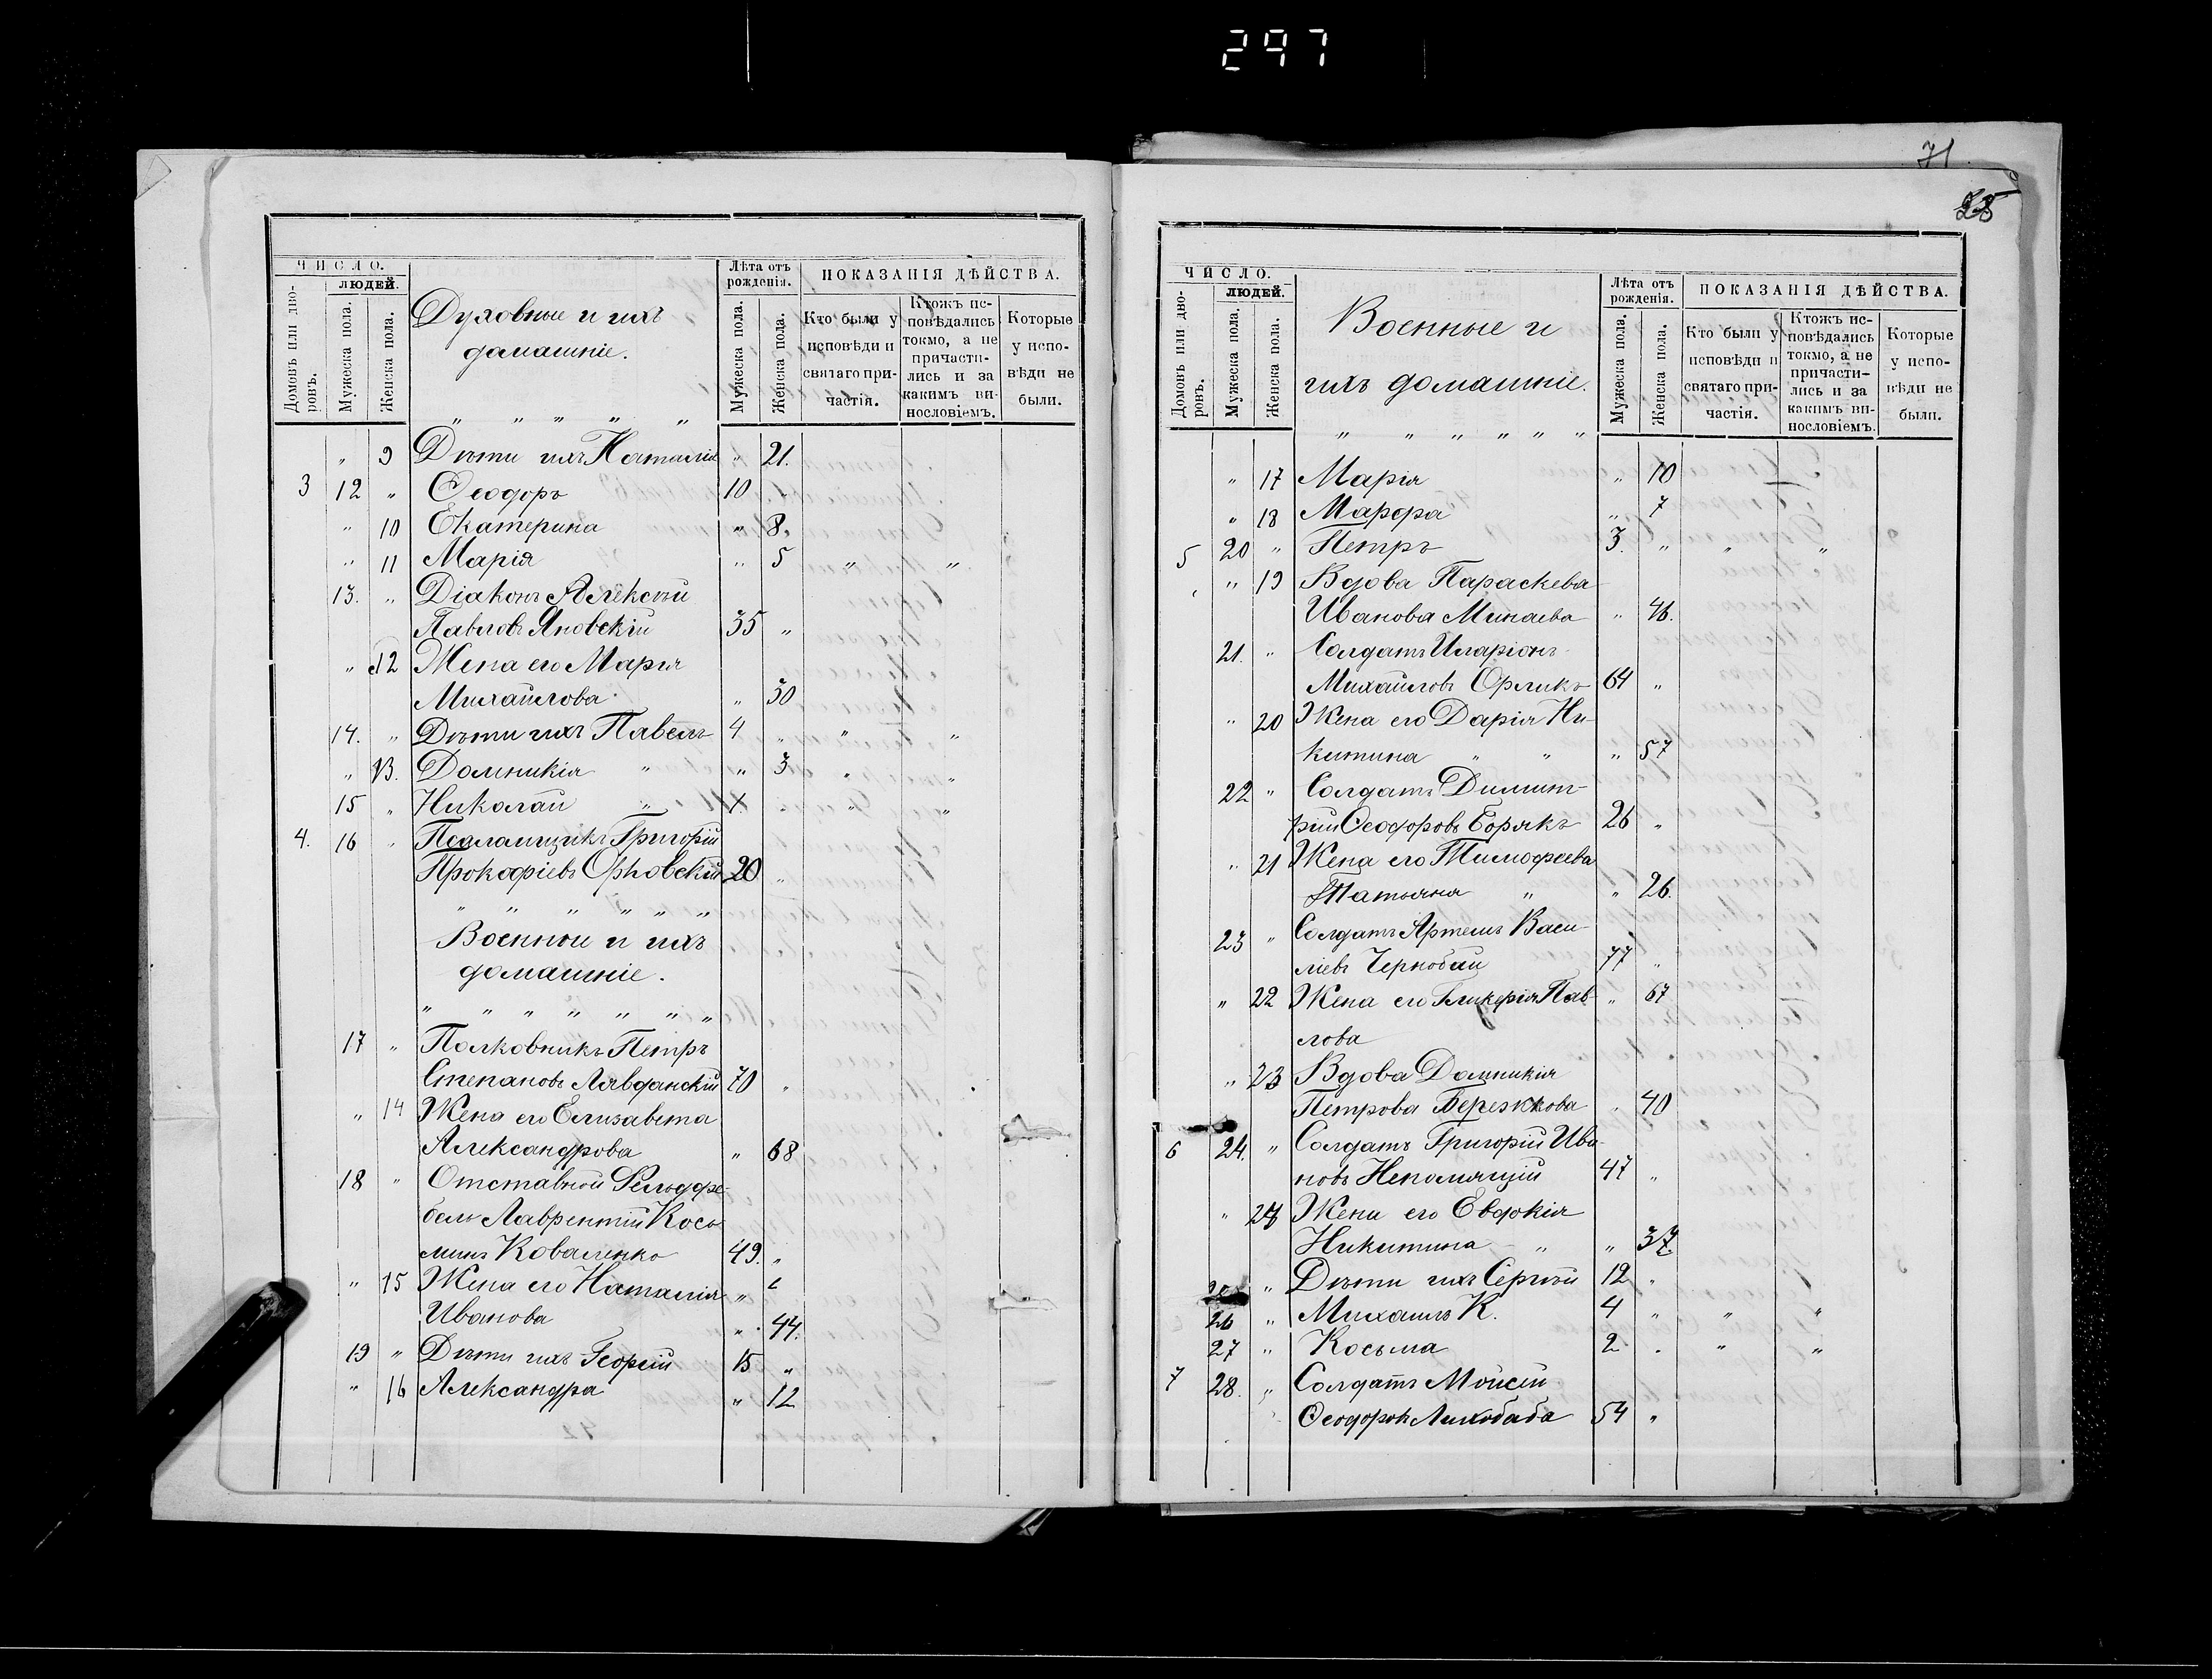 297
71
25
ЧИСЛО.
Домовъ или дворовъ.
людей.
Мужеска пола.
Женска пола.
Духовные и ихъ
домашніе.
Лѣта отъ рожденія.
Мужеска пола.
Женска пола.
ПОКАЗАНІЯ ДѢЙСТВА.
Кто были у исповѣди и святаго причастія.
Ктожъ исповѣдались токмо, а не причастились и за какимъ винословіемъ.
Которые у исповѣди не были.
" " " " "
" 9 Дѣти ихъ Наталія " 21.
3 12 " Ѳеодоръ 10
" 10 Екатерина " 8.
" 11 Марія " 5 " "
13. " Діаконъ Алексѣй
Павловъ Яновскій 35 "
" 12 Жена его Марія
Михайлова " 30
14. " Дѣти ихъ Павелъ 4 " " "
" 13. Домникія " " 3 " "
15 " Николай " 1. " " "
4. 16 " Псаломщикъ Григорій
Прокофіевъ 20 "
" " " " " "
Военные и ихъ
домашніе.
" " " " " " "
17 " Полковникъ Петръ
Степановъ Лавданскій 70 "
" 14 Жена его Елизавета
Александрова " 68
18 " Отставной Фельдфе-
бель Лаврентій Кось-
минъ Коваленко 49. "
" 15 Жена его Наталія "
Иванова " 44.
19 " Дѣти ихъ Георгій 15 "
" 16 Александра " 12
ЧИСЛО.
Домовъ или дворовъ.
людей.
Мужеска пола.
Женска пола.
Военные и
ихъ домашніе.
Лѣта отъ рожденія.
Мужеска пола.
Женска пола.
ПОКАЗАНІЯ ДѢЙСТВА.
Кто были у исповѣди и святаго причастія.
Ктожъ исповѣдались токмо, а не причастились и за какимъ винословіемъ.
Которые у исповѣди не были.
" " " " " "
" 17 Марія " 10
" 18 Марфа " 7
5 20 " Петръ 3. " " "
" 19 Вдова Параскева
Иванова Минаева " 46.
21. " Солдатъ Иларіонъ
Михайловъ Орликъ 64 "
" 20 Жена его Дарія Ни-
китина " " " 57
22 " Солдатъ Димит-
рій Ѳеодоровъ Борякъ 26 "
" 21 Жена его Тимофеева
Татьяна " " 26.
23 " Солдатъ Артемъ Васи-
ліевъ Чернобай 77 "
" 22 Жена его Гликерія Пав- " 67
лова
" 23 Вдова Домникія
Петрова " 40
6 24. " Солдатъ Григорій Ива-
новъ Непомящій 47 "
" 24 Жена его Евдокія
Никитина " " 37.
" Дѣти ихъ Сергѣй 12 "
26 " Михаилъ К. 4 " " "
27 " Косьма 2 " " "
7 28. " Солдатъ Моисей
Ѳеодоровъ Лихобаба 54 "